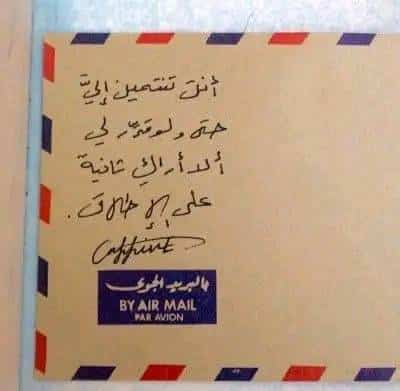 أنتِ تنتمين إليّ
حتى ولو قدّر لي
ألا أراكِ ثانية
على الإطلاق.
بالبريد الجوى
BY AIR MAIL
PAR AVION